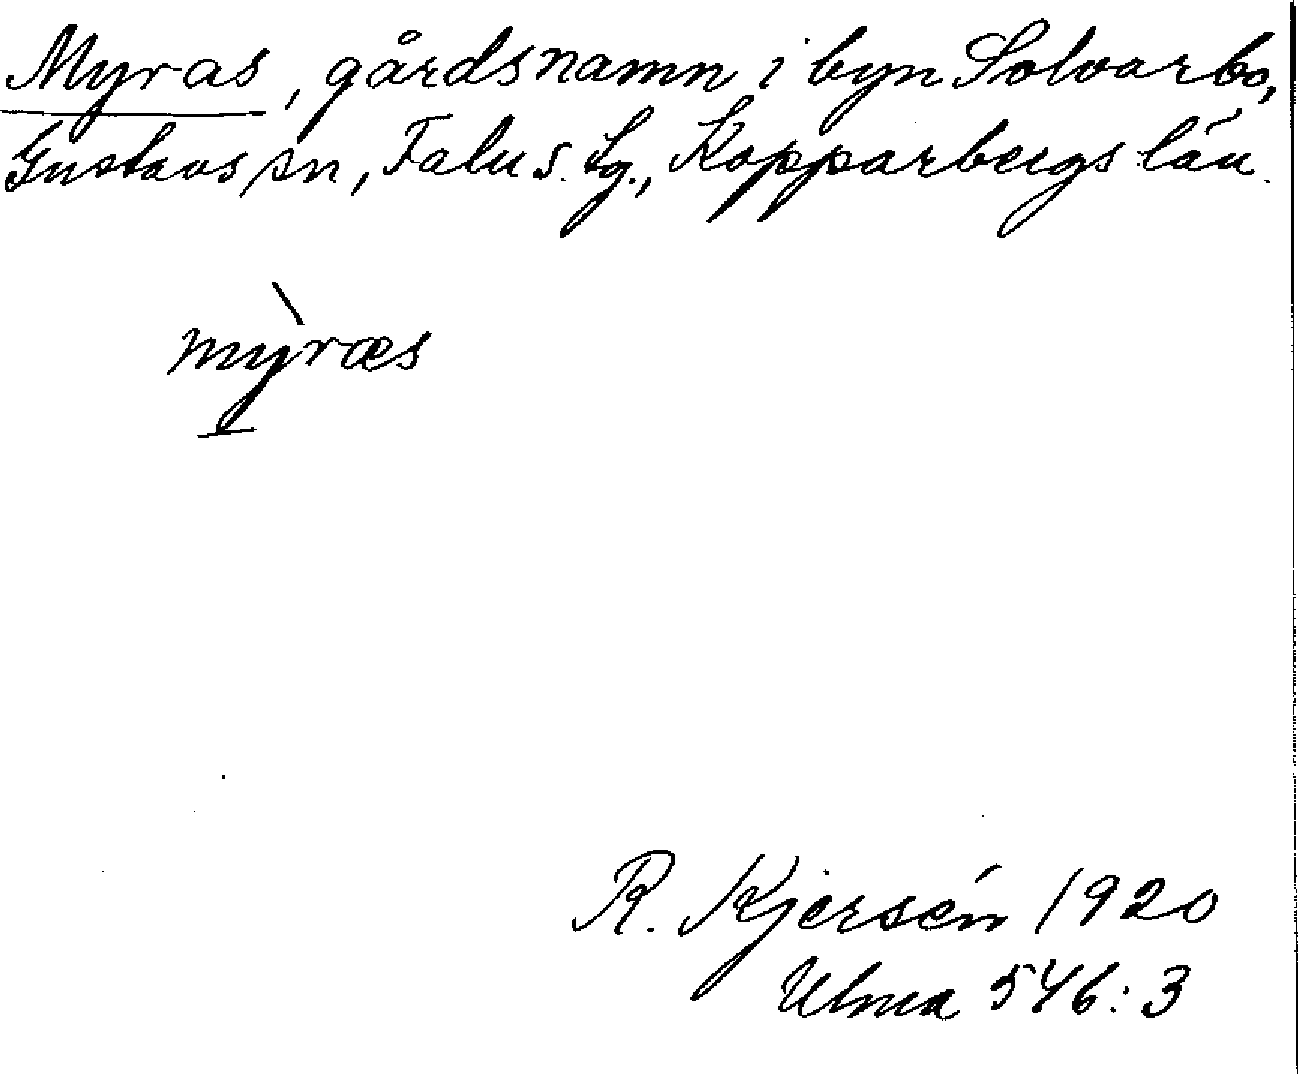 Myras, gårdsnamn i byn Solvarbo,
Gustavs sn, Falu s. tg., Kopparbergs län.
mỳræs
R. Kjersén 1920
Ulma 546:3